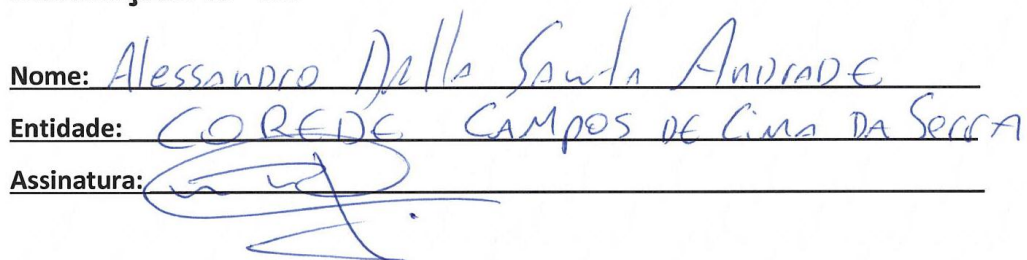 Nome: Alessandro Dalla Santa Andrade
Entidade: COREDE CAMPOS DE CIMA DA SERRA
Assinatura: